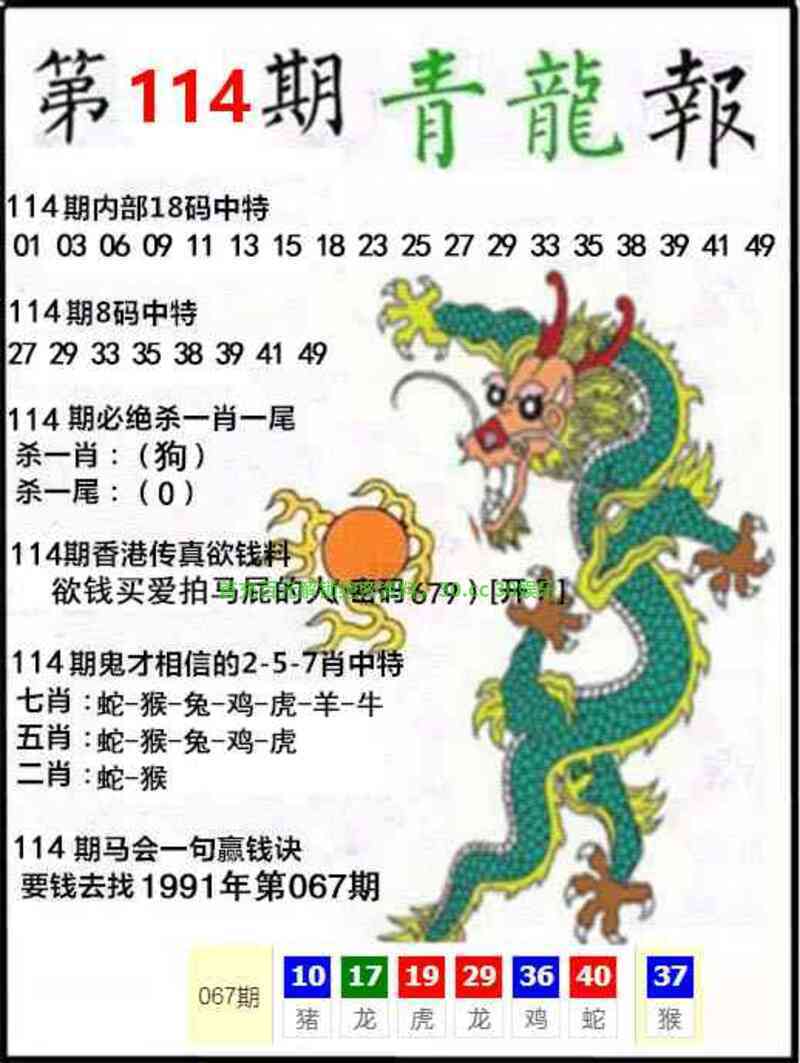 第114期青龍報
114期内部18码中特
01 03 06 09 11 13 15 18 23 25 27 29 33 35 38 39 41 49
114期8码中特
27 29 33 35 38 39 41 49
114期必绝杀一肖一尾
杀一肖：（狗）
杀一尾：（0）
114期香港传真欲钱料
欲钱买爱拍马屁的人 密码679）[开 ]
114期鬼才相信的2-5-7肖中特
七肖：蛇-猴-兔-鸡-虎-羊-牛
五肖：蛇-猴-兔-鸡-虎
二肖：蛇-猴
114期马会一句赢钱诀
要钱去找1991年第067期
067期 10 17 19 29 36 40 37
猪 龙 虎 龙 鸡 蛇 猴